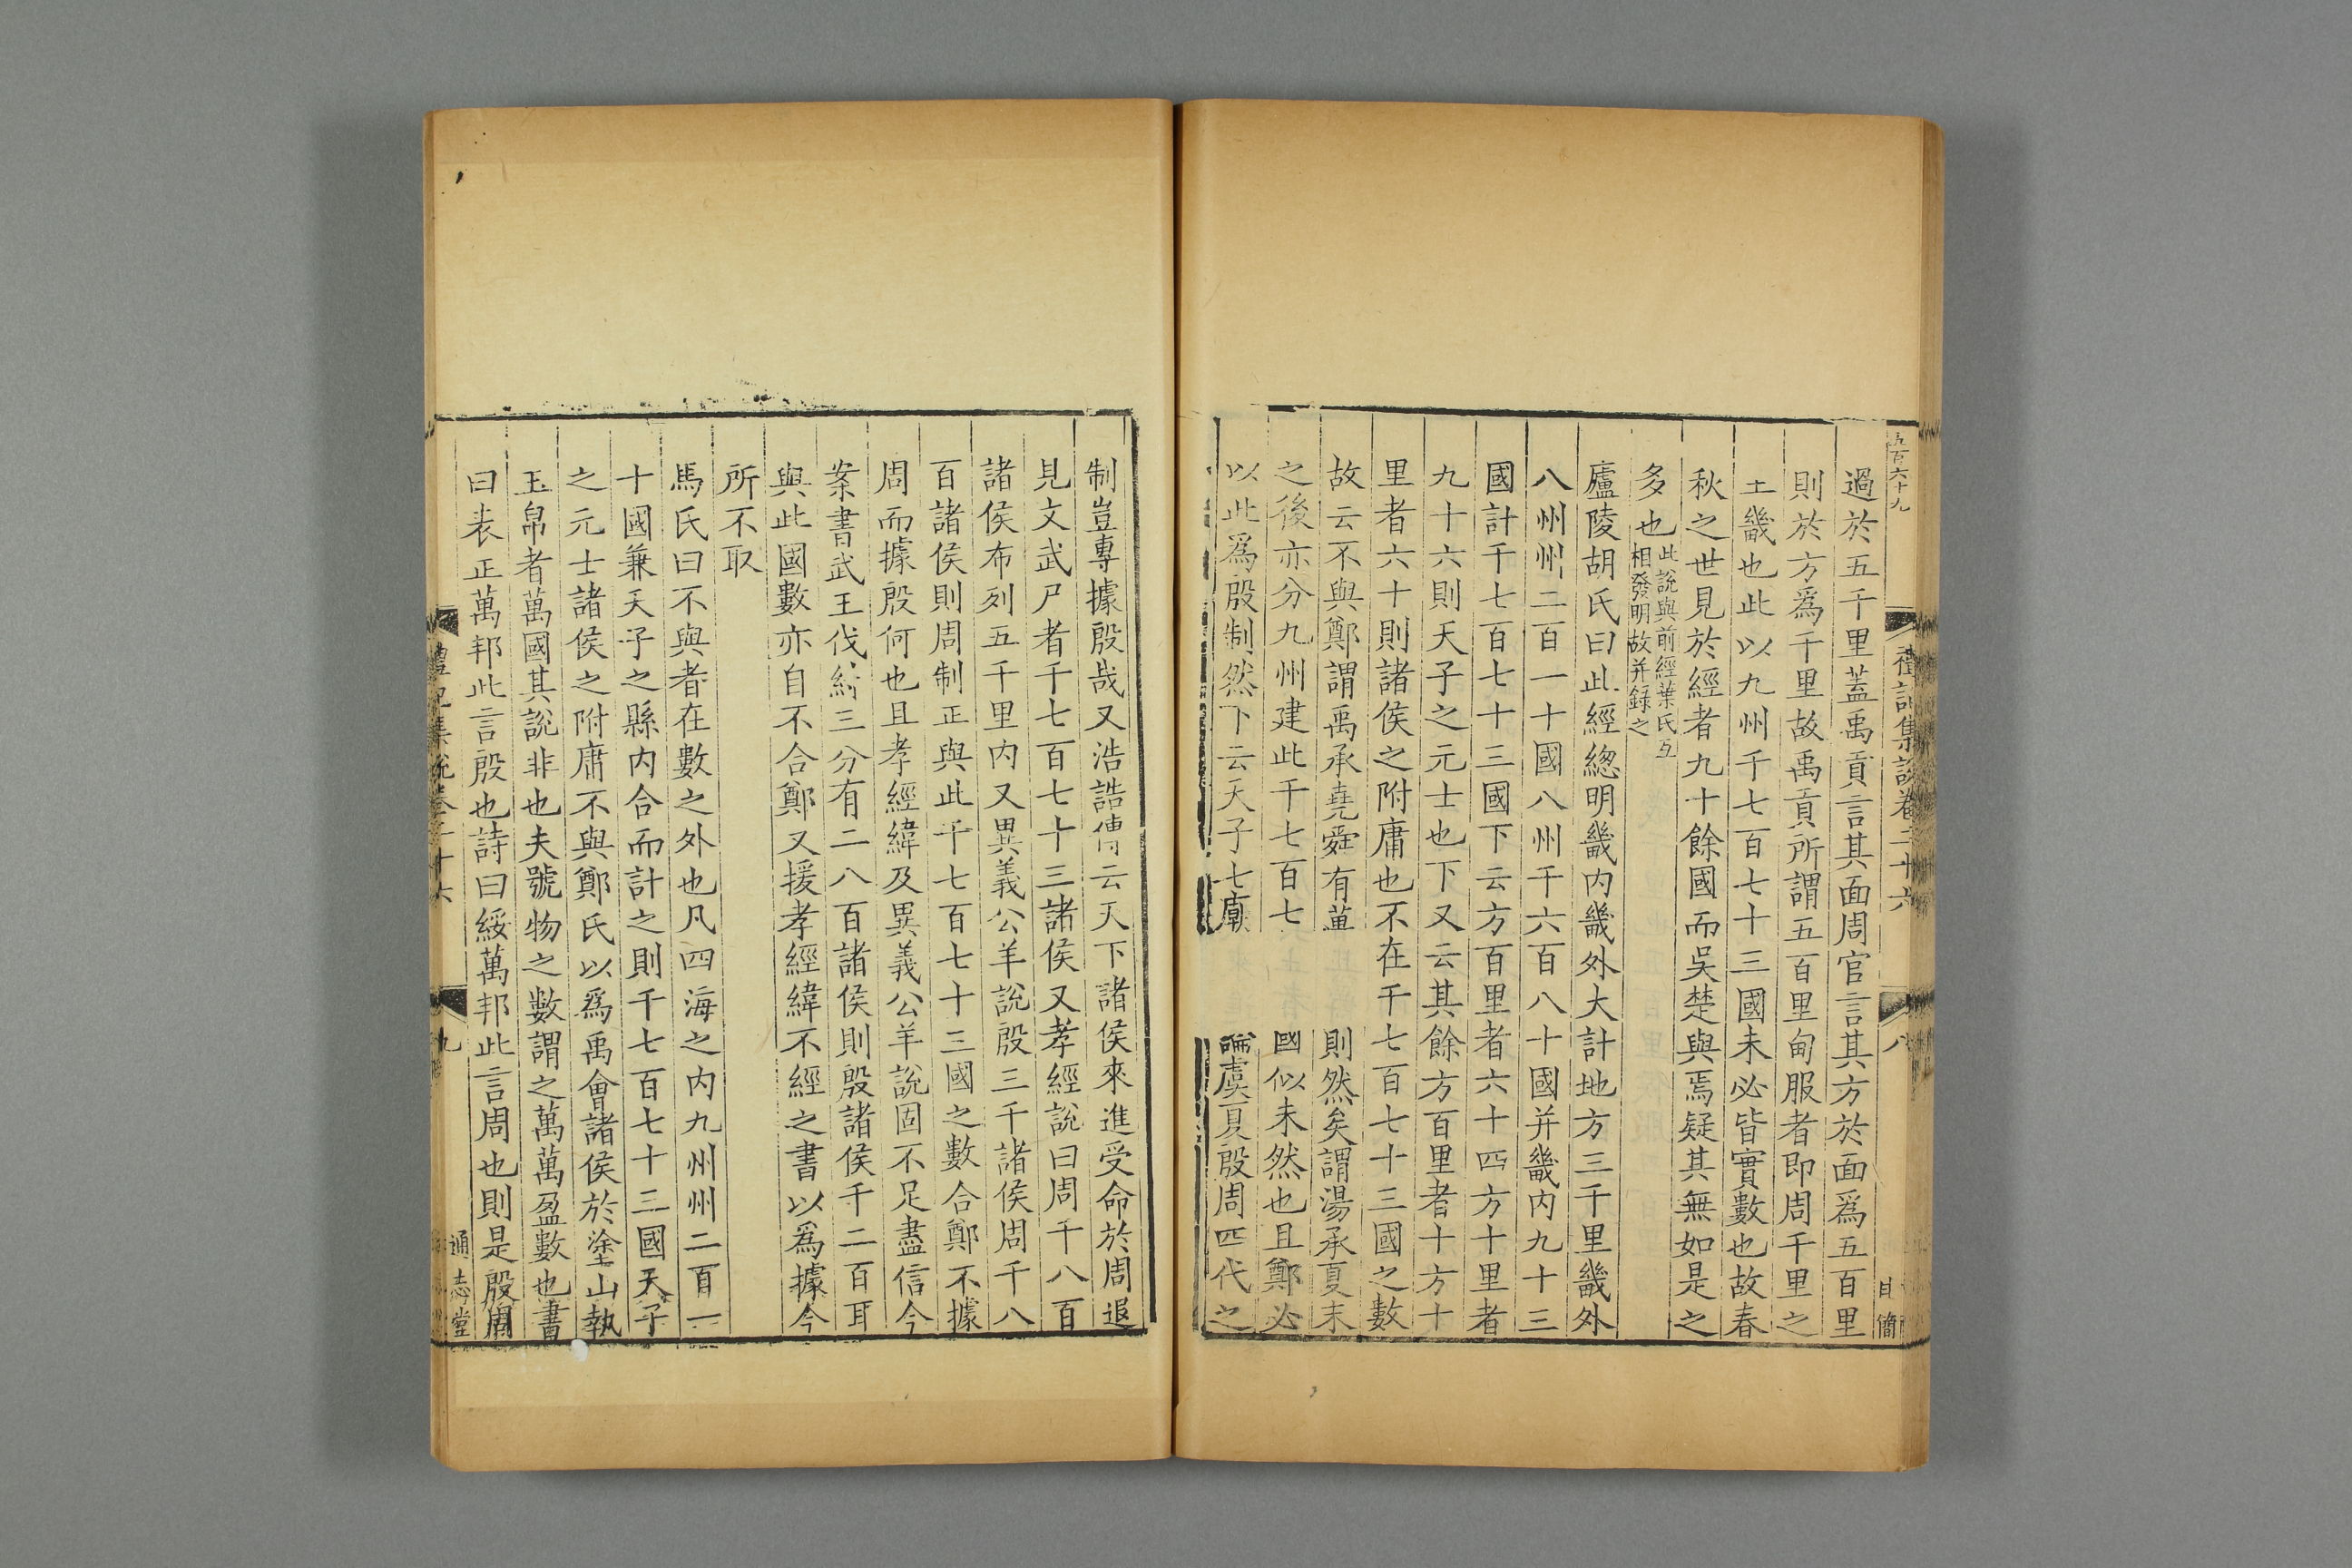 五百六十九
過於五千里蓋禹貢言其面周官言其方於面爲五百里
則於方爲千里故禹貢所謂五百里甸服者即周千里之
王畿也此以九州千七百七十三國未必皆實數也故春
秋之世見於經者九十餘國而吳楚與焉疑其無如是之
多也此說與前經葉氏互
相發明故并録之
廬陵胡氏曰此經總明畿内畿外大計地方三千里畿外
八州州二百一十國八州千六百八十國并畿内九十三
國計千七百七十三國下云方百里者六十四方十里者
九十六則天子之元士也下又云其餘方百里者十方十
里者六十則諸侯之附庸也不在千七百七十三國之數
故云不與鄭謂禹承堯舜有萬
則然矣謂湯承夏末
之後亦分九州建此千七百七
國似未然也且鄭必
以此爲殷制然下云天子七廟
論虞夏殷周四代之
禮記集說卷二十六
八
制豈專據殷哉又浩誥傳云天下諸侯來進受命於周退
見文武尸者千七百七十三諸侯又孝經說曰周千八百
諸侯布列五千里内又異義公羊說殷三千諸侯周千八
百諸侯則周制正與此千七百七十三國之數合鄭不據
周而據殷何也且孝經緯及異義公羊說固不足盡信今
案書武王伐紂三分有二八百諸侯則殷諸侯千二百耳
與此國數亦自不合鄭又援孝經緯不經之書以爲據今
所不取
馬氏曰不與者在數之外也凡四海之内九州州二百一
十國兼天子之縣内合而計之則千七百七十三國天子
之元士諸侯之附庸不與鄭氏以爲禹會諸侯於塗山執
玉帛者萬國其說非也夫號物之數謂之萬萬盈數也書
曰表正萬邦此言殷也詩曰綏萬邦此言周也則是殷周
禮記集說卷二十六
九
通志堂